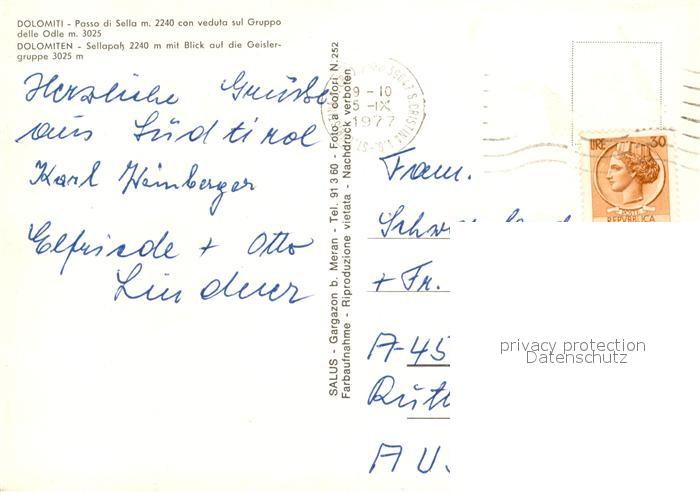 DOLOMITI - Passo di Sella m. 2240 con veduta sul Gruppo
delle Odle m. 3025
DOLOMITEN - Sellapaß 2240 m mit Blick auf die Geisler-
gruppe 3025 m
Herzliche Grüße
aus Südtirol
Karl Weinberger
Elfriede + Otto
Lindner
SALUS - Gargazon b. Meran - Tel. 91 3 60 - Foto a colori N. 252
Farbaufnahme - Riproduzione vietata - Nachdruck verboten
39047 S. CRISTINA
9-10
5-IX
1977
LIRE 30
POSTE
REPVBBLICA
Fam.
+ Fr.
A-45
A U.
privacy protection
Datenschutz